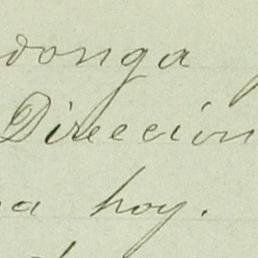 donga
Dirección
a hoy.